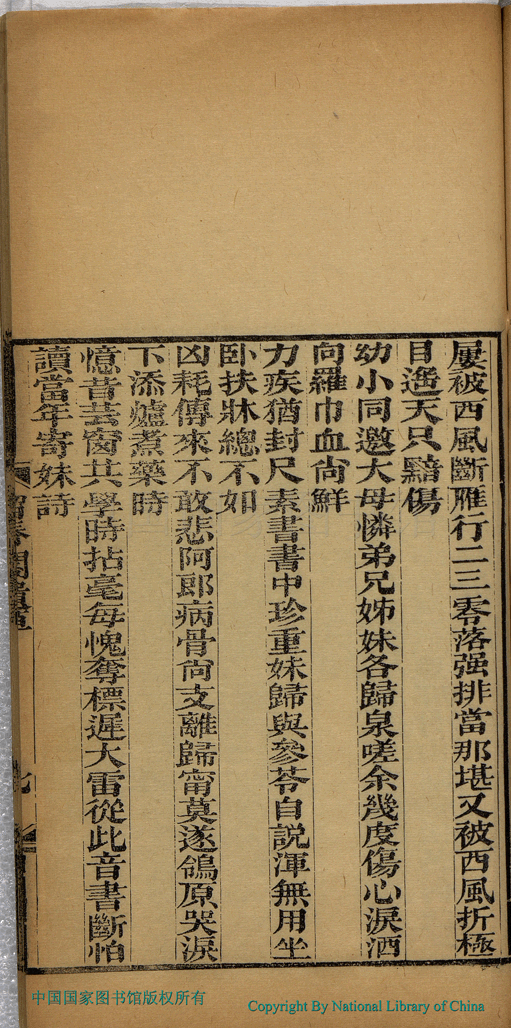 屢被西風斷雁行二三零落强排當那堪又被西風折極
目遥天只黯傷
幼小同邀大母憐弟兄姊妹各歸泉嗟余幾度傷心淚洒
向羅巾血尙鮮
力疾猶封尺素書書中珍重妹歸與參苓自説渾無用坐
卧扶牀總不如
凶耗傳來不敢悲阿郎病骨尙支離歸甯莫遂鴒原哭淚
下添爐煮藥時
憶昔芸窗共學時拈毫每愧奪標遲大雷從此音書斷怕
讀當年寄妹詩
中国国家图书馆版权所有
Copyright By National Library of China